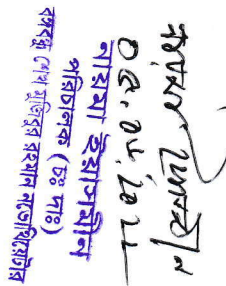 ০৫.০৮.২০২১
নায়মা ইয়াসমীন
পরিচালক (চঃ দাঃ)
বঙ্গবন্ধু শেখ মুজিবুর রহমান নভোথিয়েটার